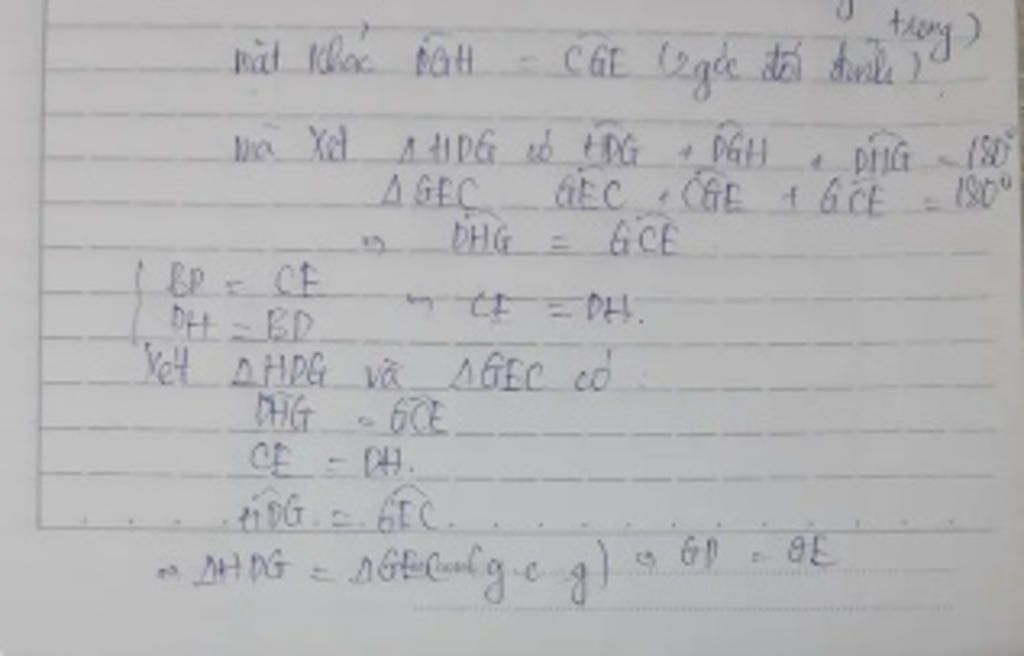 trong)
mặt khác DGH = CGE (2 góc đối đỉnh)
mà Xét Δ HDG có HDG + DGH + DHG = 180°
Δ GEC GEC + CGE + GCE = 180°
=> DHG = GCE
BD = CE
=> CE = DH.
DH = BD
Xét Δ HDG và Δ GEC có :
DHG = GCE
CE = DH.
HDG = GEC.
=> Δ HDG = Δ GEC (g-c-g) => GD = GE